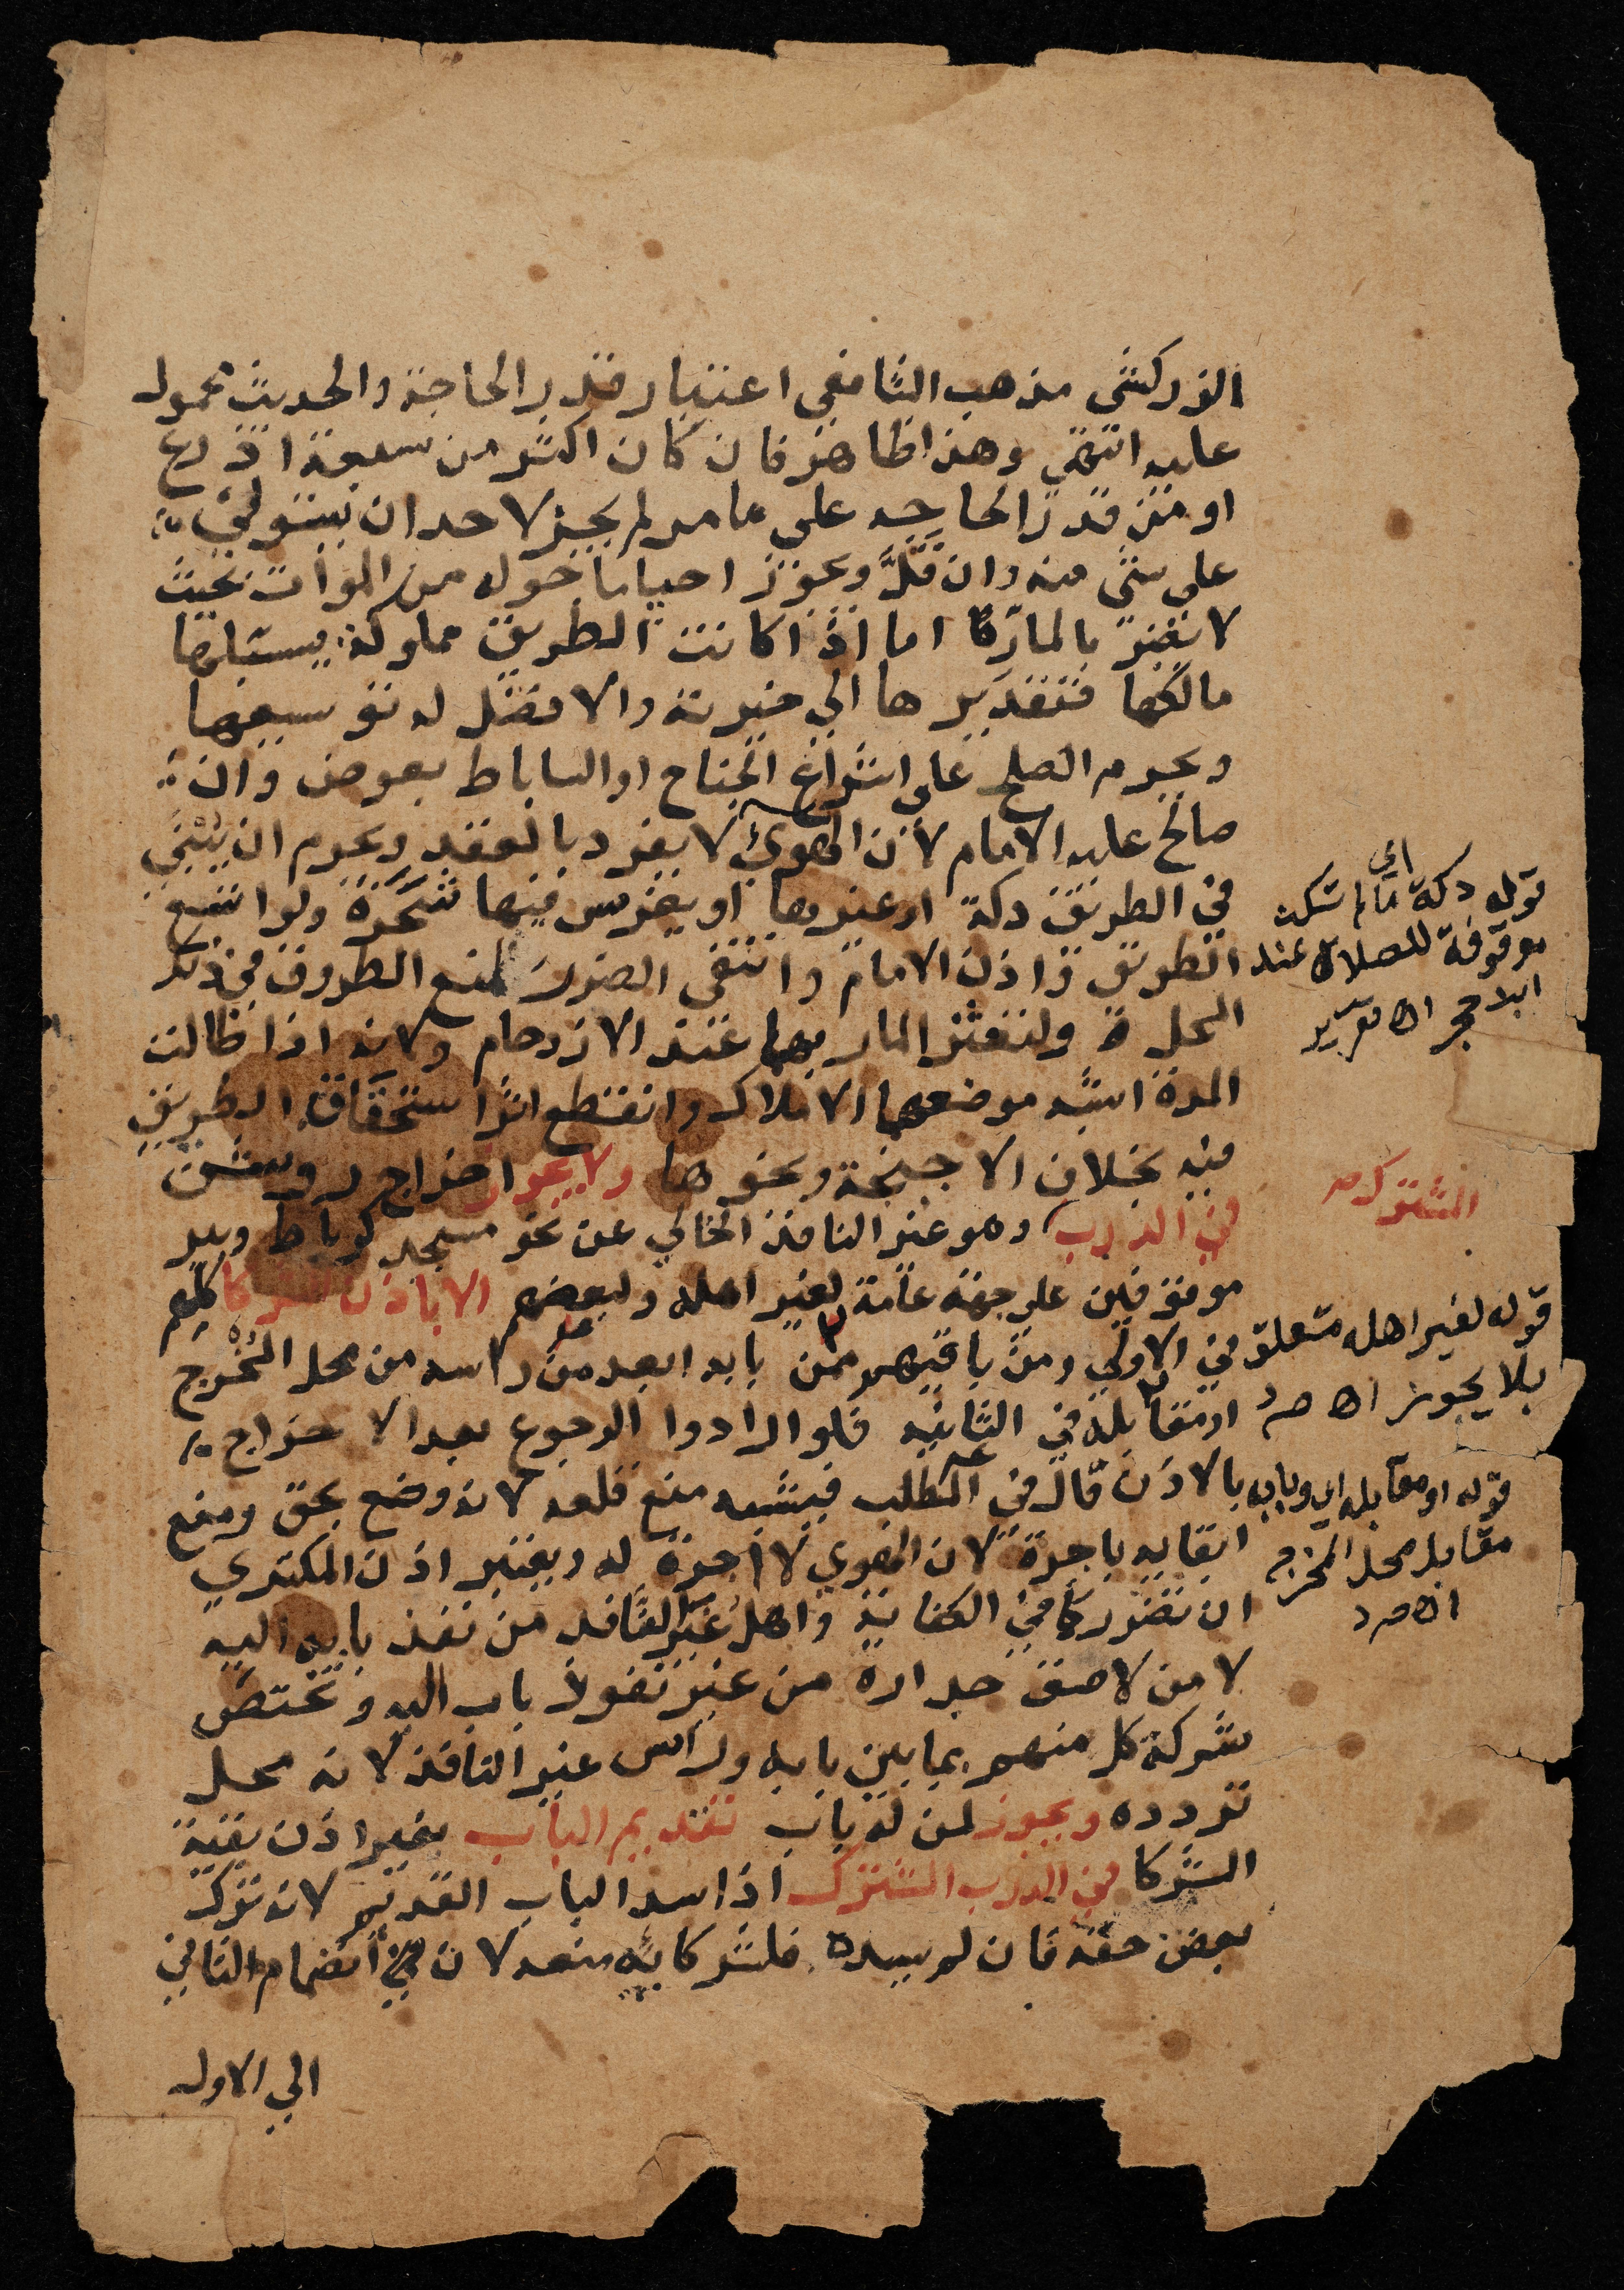 الزركشي مذهب الشافعي اعتبار قدر الحاجة والحديث محمول
عليه انتهى وهذا ظاهر فان كان اكثر من سبعة اذرع
او من قدر الحاجه على ما مر لم يجز لاحد ان يستولي
على شي منه وان قل ويجوز احيا ما حوله من الموات بحيث
لا يضر بالمار اما اذا كانت الطريق مملوكة يسبلها
مالكها فتقديرها الي خيرته والافضل له توسيعها
ويحرم الصلح على اشراع الجناح او الساباط بعوض وان
صالح عليه الامام لان الهوى لا يفرد بالعقد ويحرم ان يبني
في الطريق دكة او غيرها او يغرس فيها شجرة ولو اتسع
الطريق واذن الامام وانتفى الضرر لمنع الطروق في ذلك
المحل ولتعثر المار بهما عند الازدحام ولانه اذا طالت
المدة اشبه موضعهما الاملاك وانقطع اثر استحقاق الطريق
فيه بخلاف الاجنحة ونحوها ولا يجوز اخراج روشن
في الدرب وهو غير النافذ الخالي عن نحو مسجد كرباط وبير
موقوفين على جهة عامة لغير اهله ولبعضهم الا باذن الشركا كلهم
في الاولي ومن باقيهم ممن بابه ابعد من راسه من محل المخرج
او مقابله في الثانيه فلو ارادوا الرجوع بعد الاخراج
بالاذن قال في المطلب فيشبه منع قلعه لانه وضع بحق ومنع
ابقايه باجرة لان الهوي لا اجرة له ويعتبر اذن المكتري
ان تضرر كما في الكفاية واهل غير النافذ من نفذ بابه اليه
لا من لاصق جداره من غير نفوذ باب اليه وتختص
شركة كل منهم بما بين بابه وراس غير النافذ لانه محل
تردده ويجوز لمن له باب تقديم الباب بغير اذن بقية
الشركا في الدرب المشترك اذا سد الباب القديم لانه ترك
بعض حقه فان لم يسده فلشركايه منعه لان انضمام الثاني
الي الاول
قوله دكة اي ما لم تكن
موقوفة للصلاة عند
ابن حجر اه تقرير
المشترك صح
قوله لغير اهله متعلق
بلا يجوز اه م د
قوله او مقابله اي وبابه
مقابل محل المخرج
اه م د